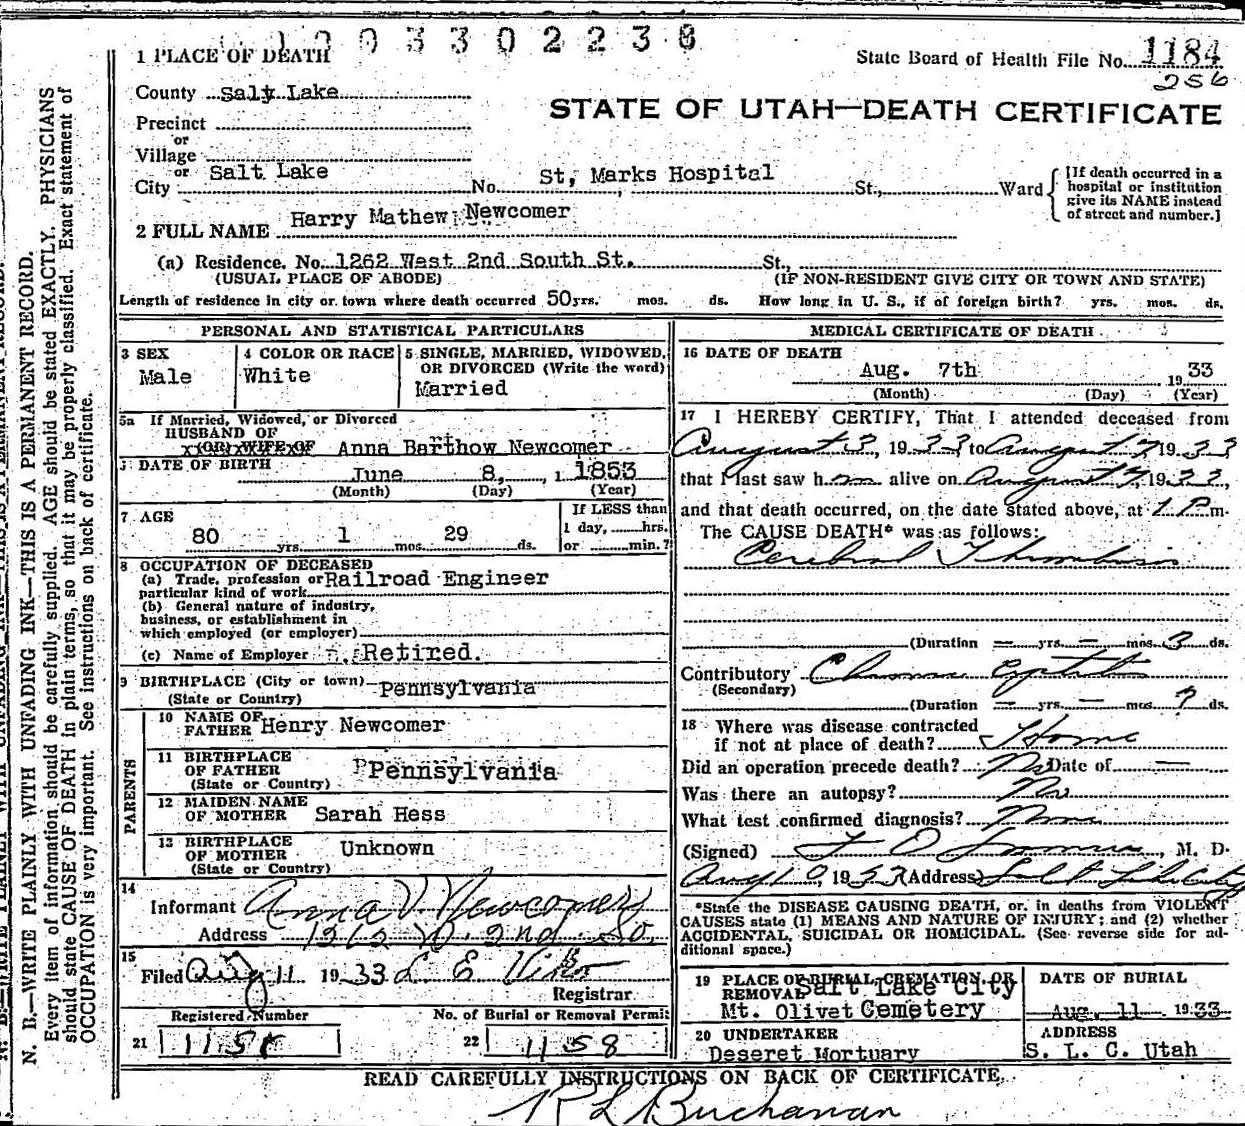 1003302230
1 PLACE OF DEATH
State Board of Health File No. 1184
256
County Salt Lake
STATE OF UTAH—DEATH CERTIFICATE
Precinct
or
Village
or
City Salt Lake No. St, Marks Hospital St., Ward
[If death occurred in a hospital or institution give its NAME instead of street and number.]
2 FULL NAME Harry Mathew Newcomer
(a) Residence. No. 1262 West 2nd South St. St.,
(USUAL PLACE OF ABODE) (IF NON-RESIDENT GIVE CITY OR TOWN AND STATE)
Length of residence in city or town where death occurred 50 yrs. mos. ds. How long in U. S., if of foreign birth? yrs. mos. ds.
PERSONAL AND STATISTICAL PARTICULARS
3 SEX
Male
4 COLOR OR RACE
White
5 SINGLE, MARRIED, WIDOWED, OR DIVORCED (Write the word)
Married
5a If Married, Widowed, or Divorced
HUSBAND OF
(OR) WIFE OF Anna Barthow Newcomer
DATE OF BIRTH June 8, 1853
(Month) (Day) (Year)
7 AGE
80 yrs. 1 mos. 29 ds.
If LESS than
1 day, hrs.
or min.?
8 OCCUPATION OF DECEASED
(a) Trade, profession or particular kind of work Railroad Engineer
(b) General nature of industry, business, or establishment in which employed (or employer)
(c) Name of Employer Retired.
9 BIRTHPLACE (City or town) Pennsylvania
(State or Country)
PARENTS
10 NAME OF FATHER Henry Newcomer
11 BIRTHPLACE OF FATHER Pennsylvania
(State or Country)
12 MAIDEN NAME OF MOTHER Sarah Hess
13 BIRTHPLACE OF MOTHER Unknown
(State or Country)
14
Informant Anna V Newcomer
Address 1262 W. 2nd So.
15
Filed Aug 11 1933 L E
Registrar
Registered Number
21
No. of Burial or Removal Permit
22 1158
MEDICAL CERTIFICATE OF DEATH
16 DATE OF DEATH
Aug. 7th 1933
(Month) (Day) (Year)
17 I HEREBY CERTIFY, That I attended deceased from
August 3, 1933 to August 7, 1933
that I last saw h im alive on August 7, 1933,
and that death occurred, on the date stated above, at 1 P m.
The CAUSE DEATH* was as follows:
Cerebral Thrombosis
(Duration — yrs. — mos. 3 ds.
Contributory Chronic
(Secondary)
(Duration — yrs. — mos. ? ds.
18 Where was disease contracted
if not at place of death? Home
Did an operation precede death? No Date of —
Was there an autopsy? No
What test confirmed diagnosis? None
(Signed) M. D.
Aug 10, 1933 (Address) Salt Lake City
*State the DISEASE CAUSING DEATH, or, in deaths from VIOLENT
CAUSES state (1) MEANS AND NATURE OF INJURY; and (2) whether
ACCIDENTAL, SUICIDAL OR HOMICIDAL. (See reverse side for ad-
ditional space.)
19 PLACE OF BURIAL, CREMATION, OR REMOVAL Salt Lake City
Mt. Olivet Cemetery
DATE OF BURIAL
Aug. 11 1933
20 UNDERTAKER
Deseret Mortuary
ADDRESS
S. L. C. Utah
READ CAREFULLY INSTRUCTIONS ON BACK OF CERTIFICATE.
R L Buchanan
N. B.—WRITE PLAINLY WITH UNFADING INK—THIS IS A PERMANENT RECORD.
Every item of information should be carefully supplied. AGE should be stated EXACTLY. PHYSICIANS
should state CAUSE OF DEATH in plain terms, so that it may be properly classified. Exact statement of
OCCUPATION is very important. See instructions on back of certificate.